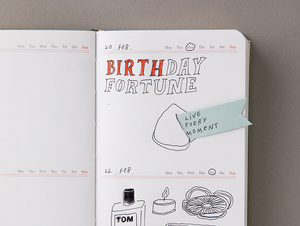 Mon Tue Wed Thu Fri Sat Sun
20. FEB.
Mon Tue Wed Thu Fri Sat Sun
BIRTHDAY
FORTUNE
LIVE
EVERY
MOMENT
Mon Tue Wed Thu Fri Sat Sun
22. FEB.
Mon Tue Wed Thu Fri Sat Sun
TOM